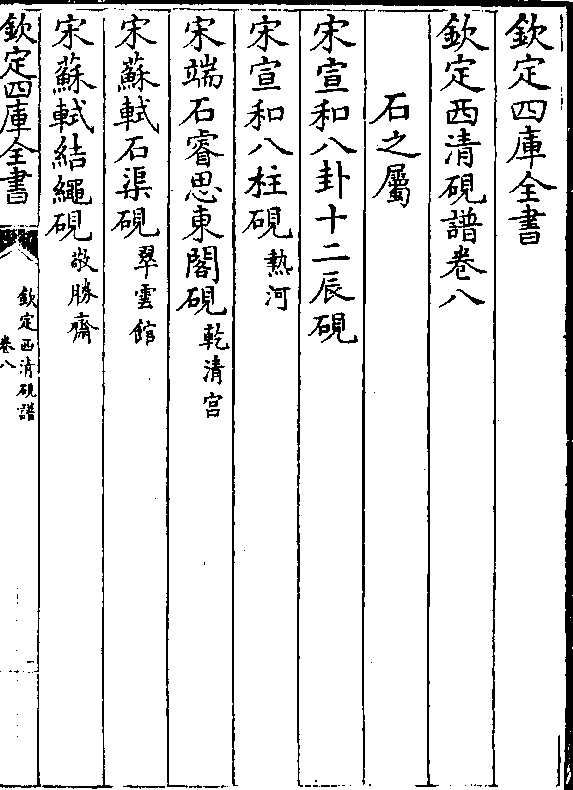 欽定四庫全書
欽定西清硯譜卷八
石之屬
宋宣和八卦十二辰硯
宋宣和八柱硯 熱河
宋端石睿思東閣硯 乾清宮
宋蘇軾石渠硯 翠雲館
宋蘇軾結繩硯 敬勝齋
欽定四庫全書
欽定西清硯譜
卷八